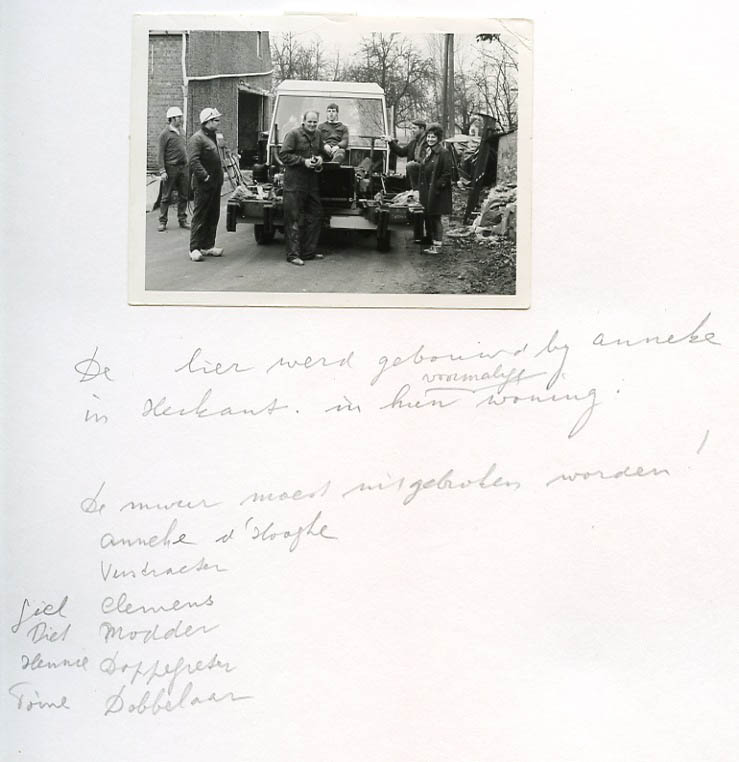 De lier werd gebouwd by anneke
in Heikant. in hun voormalige woning.
De muur moest uitgebroken worden!
anneke d'Hooghe
Verstraeten
Giel Clemens
Piet Modder
Hennie Doppegieter
Toine Dobbelaar